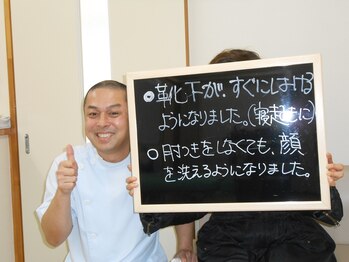 ●靴下が、すぐにはける
ようになりました。(寝起きに)
○肘つきをしなくても、顔
を洗えるようになりました。